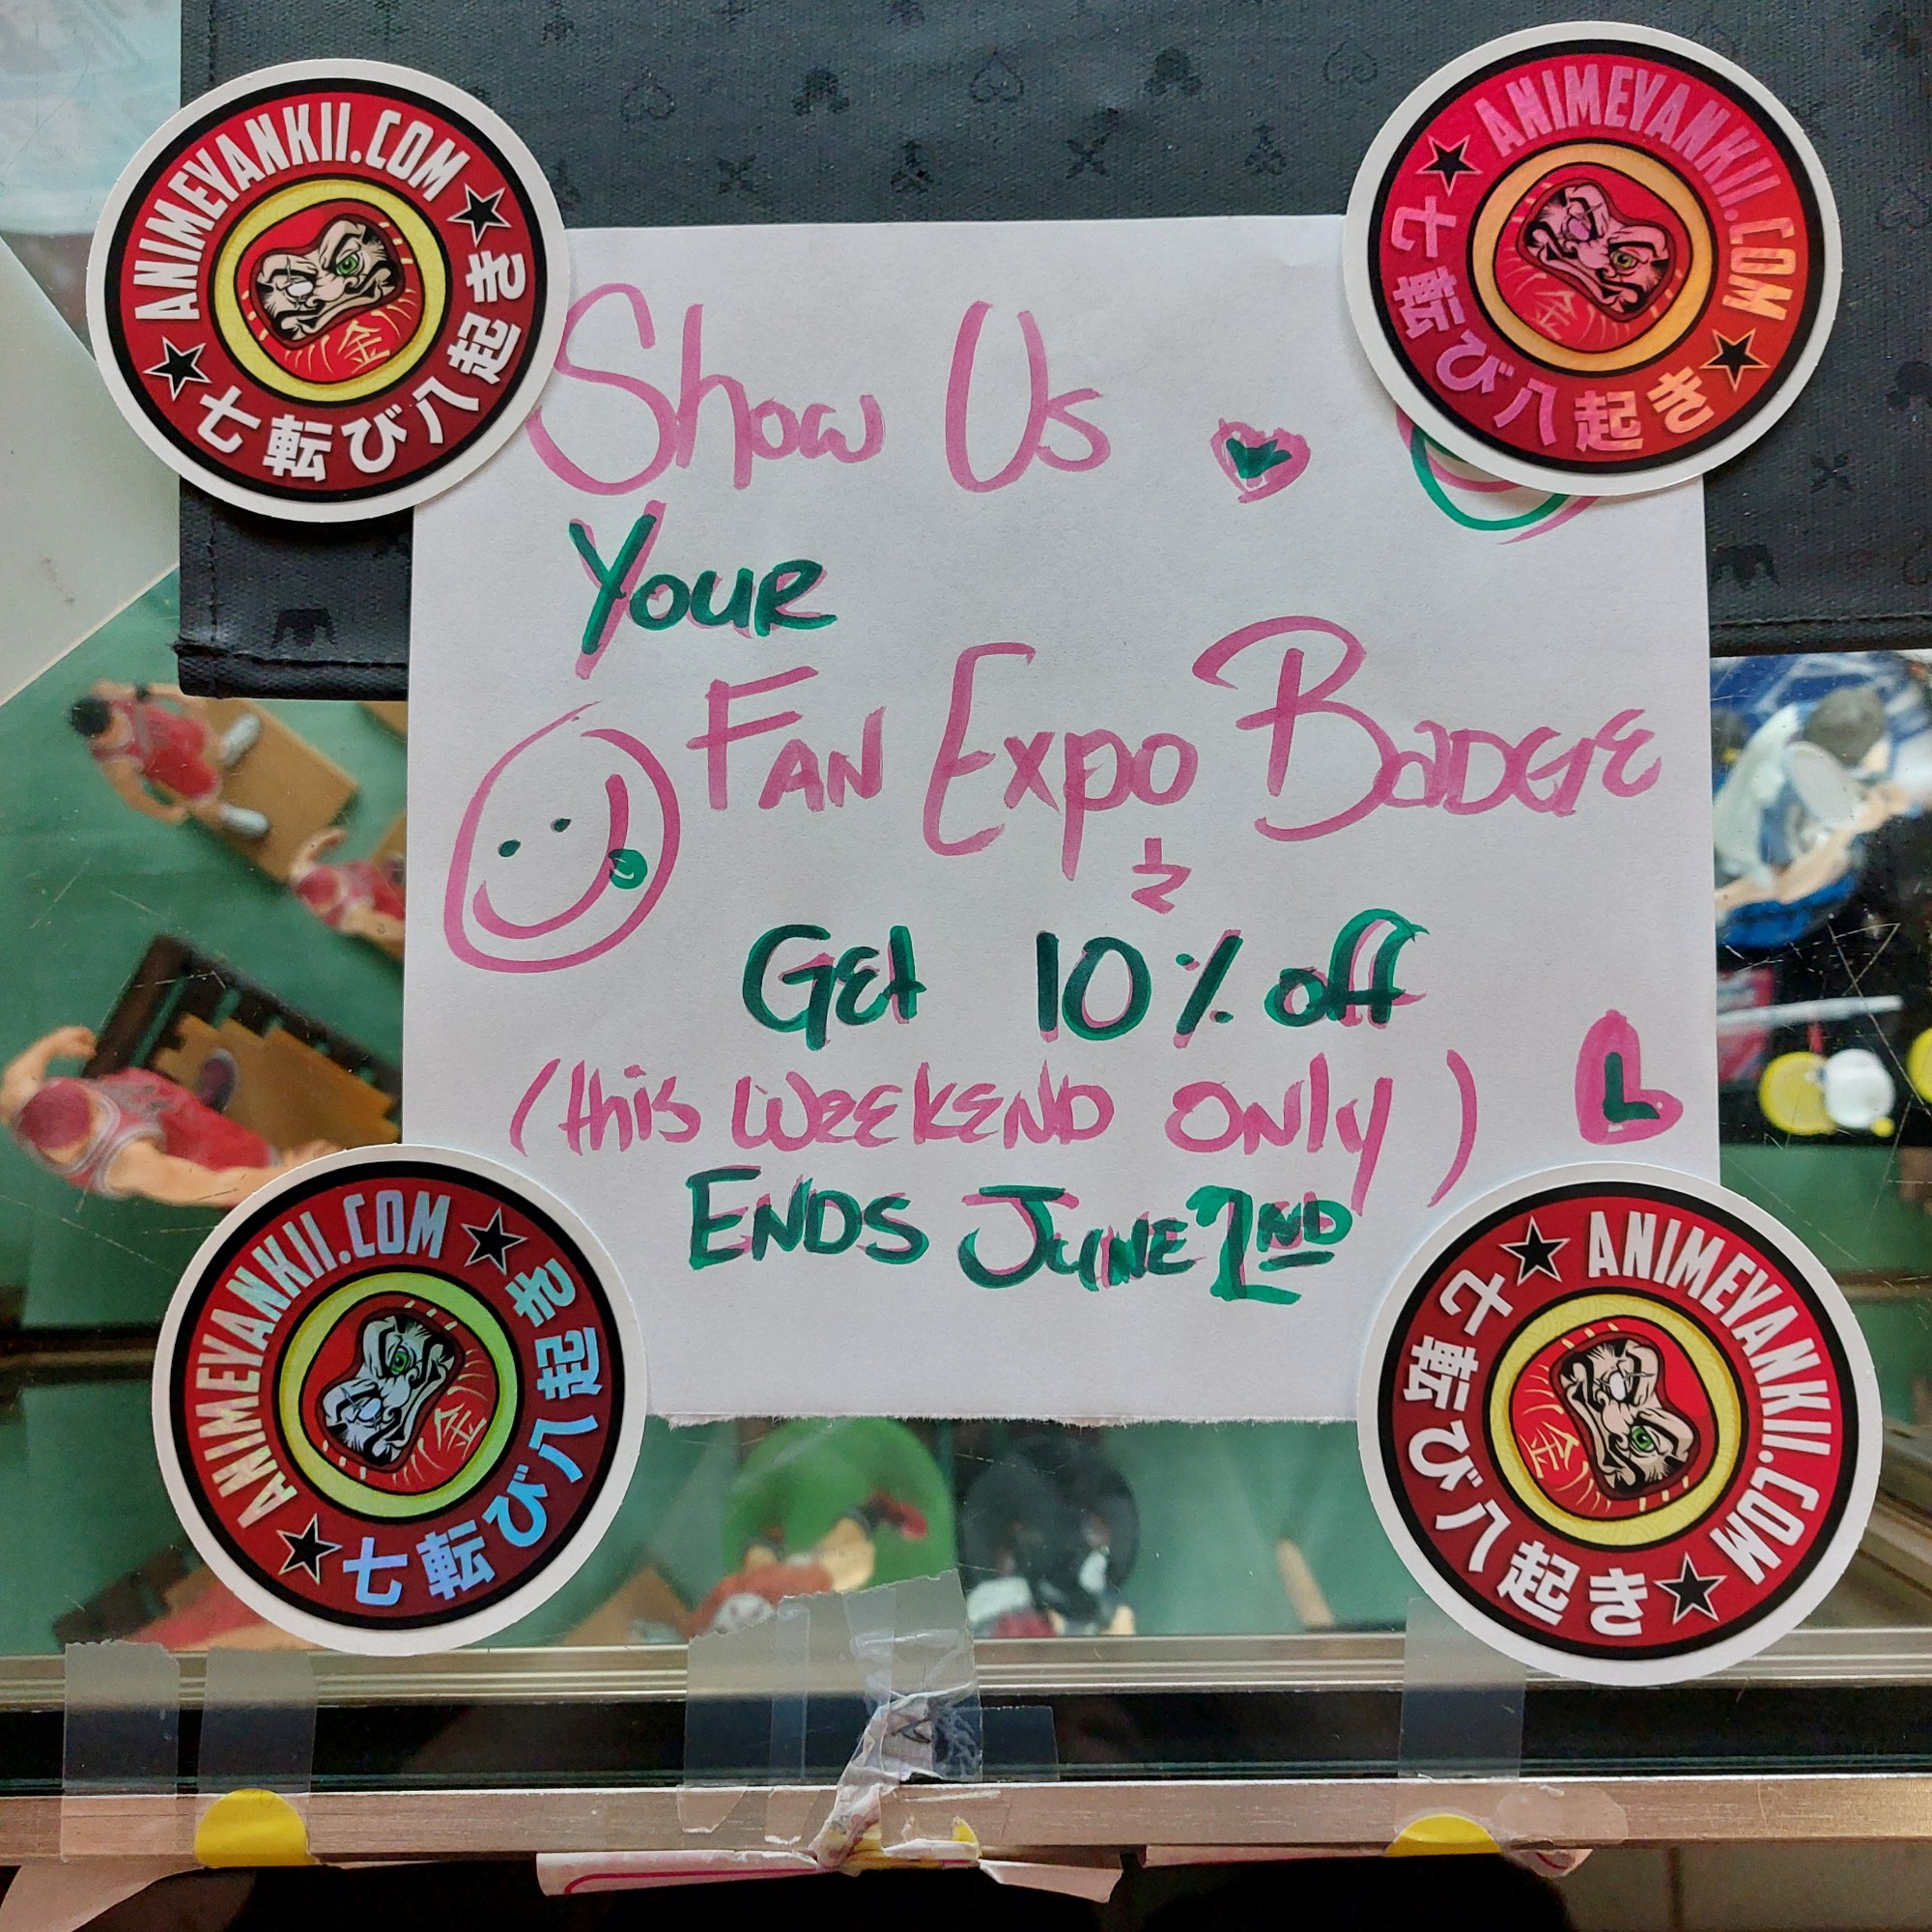 ANIMEYANKII.COM
七転び八起き
金
ANIMEYANKII.COM
七転び八起き
金
Show Us
Your
Fan Expo Badge
&
Get 10% off
(this weekend only)
Ends June 2nd
ANIMEYANKII.COM
七転び八起き
金
ANIMEYANKII.COM
七転び八起き
金